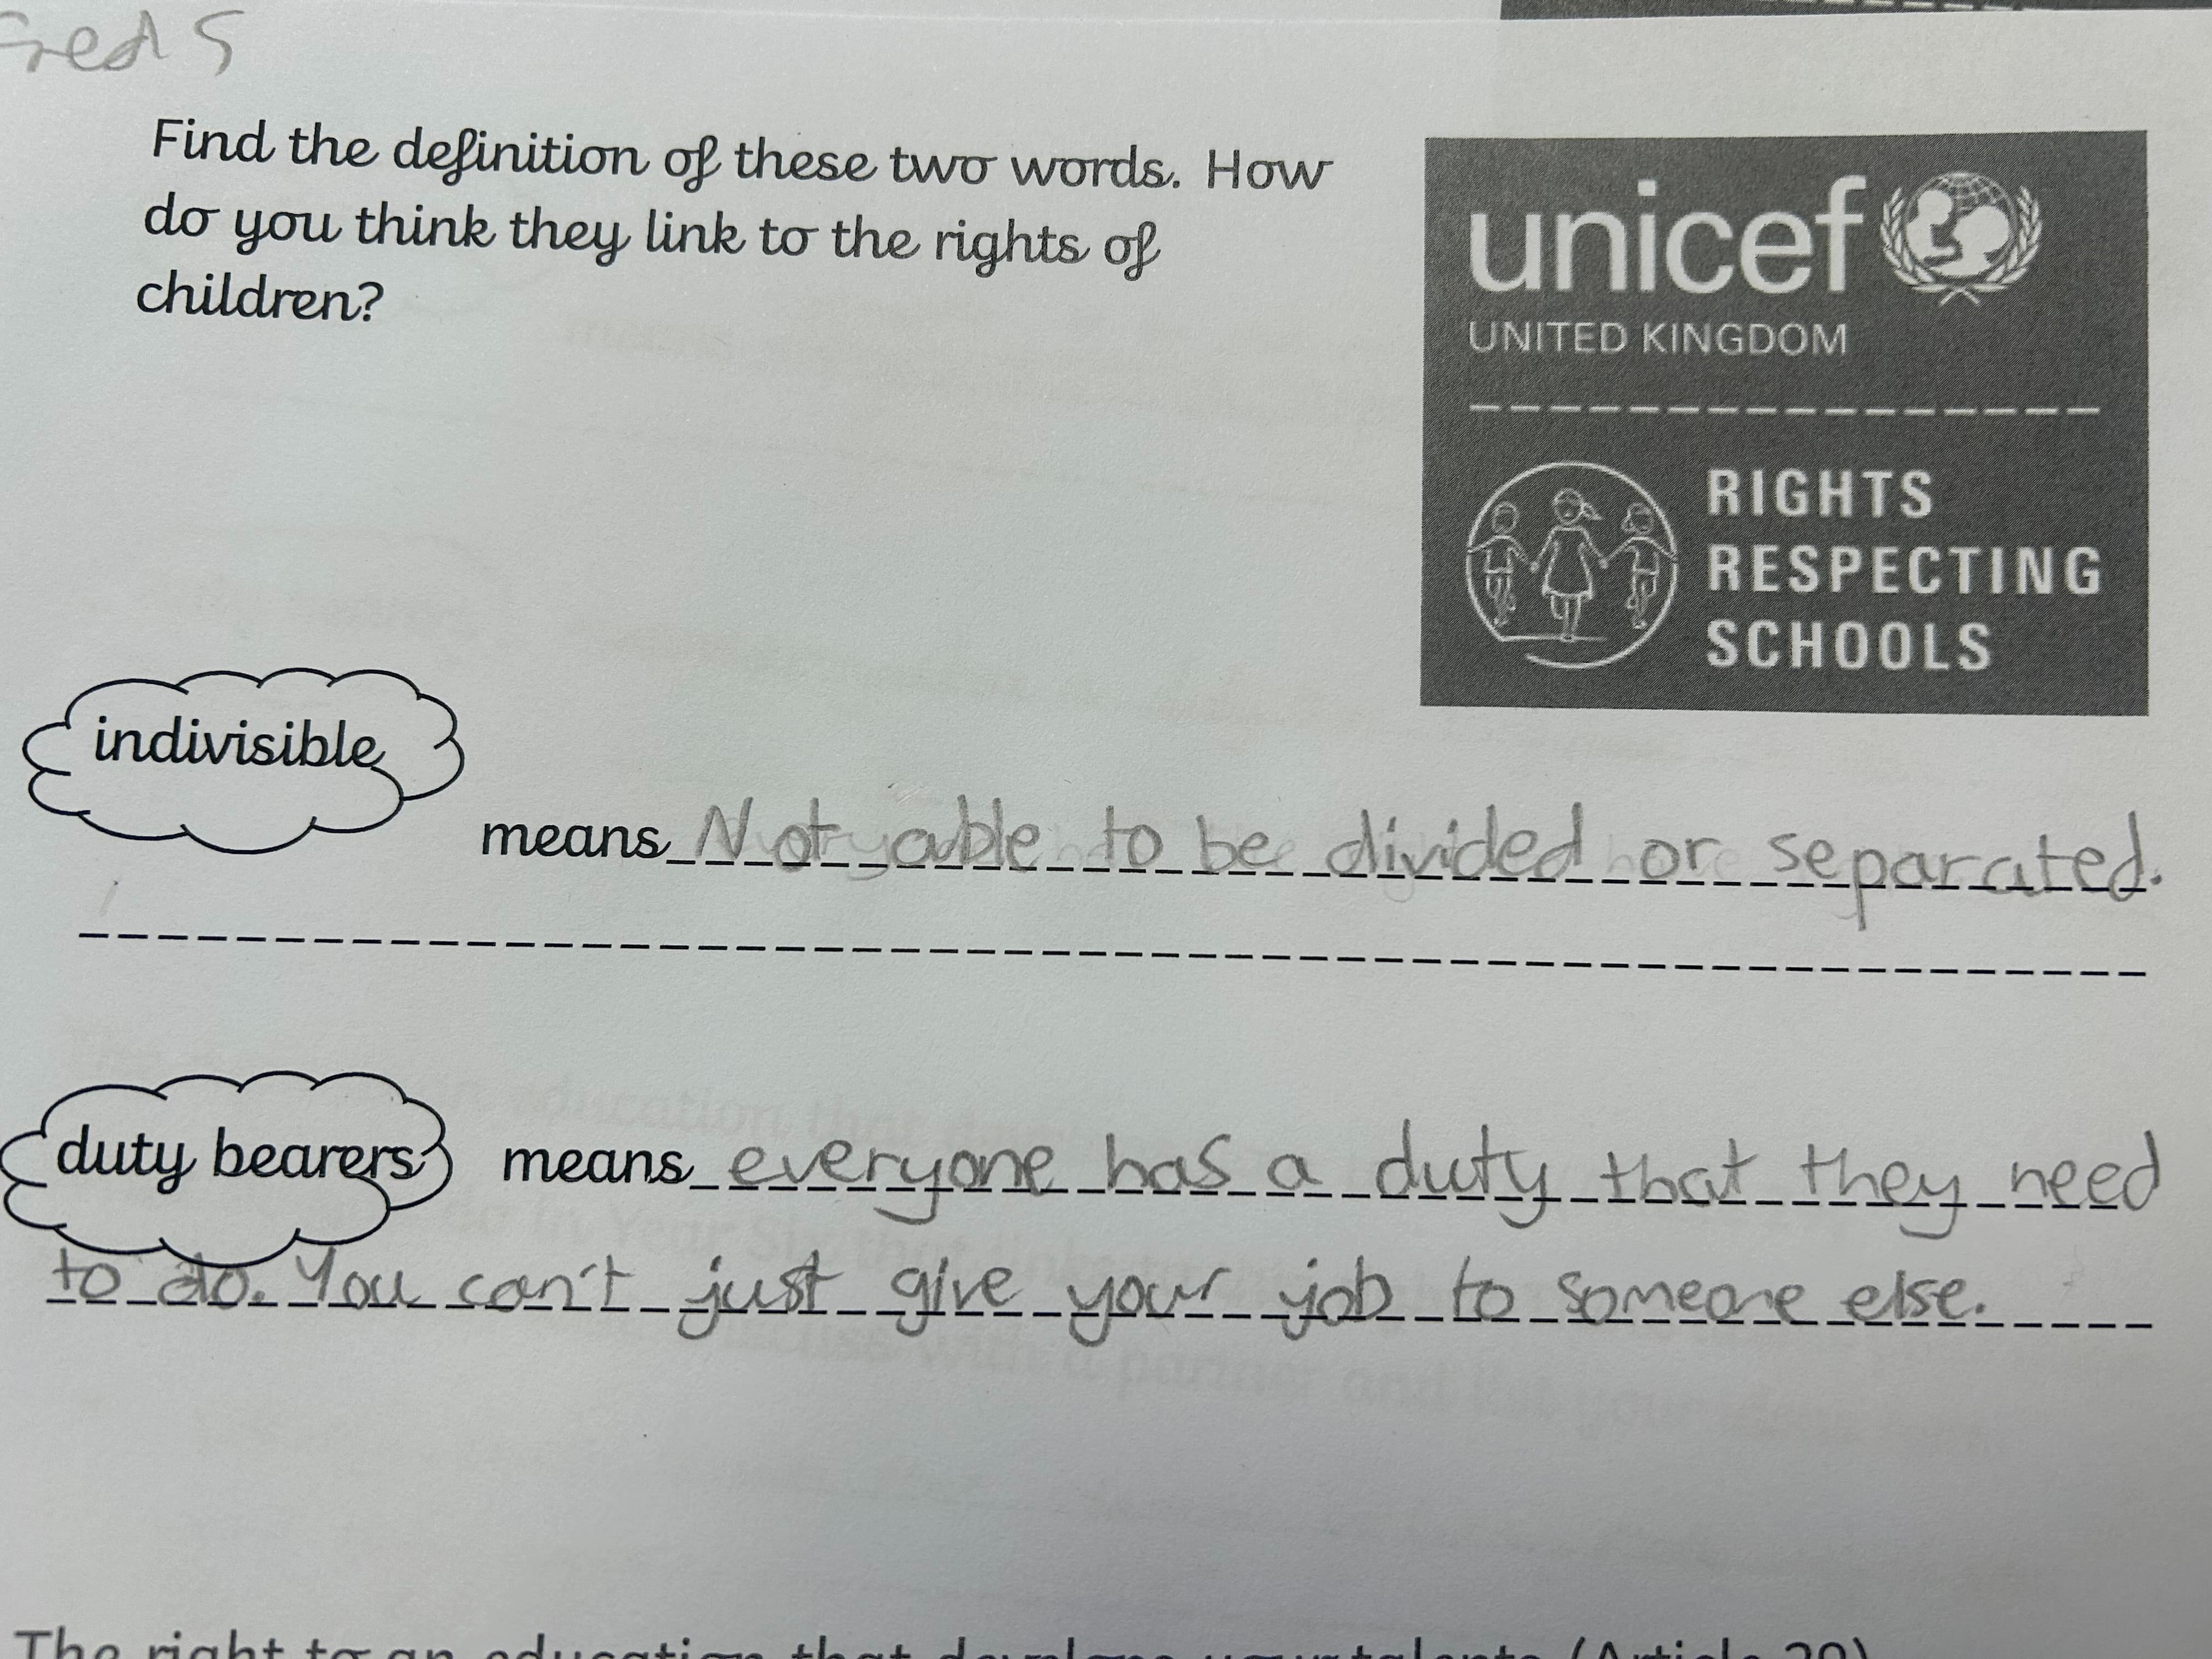 Fred S
Find the definition of these two words. How
do you think they link to the rights of
children?
unicef
UNITED KINGDOM
RIGHTS
RESPECTING
SCHOOLS
indivisible
means Not able to be divided or separated.
duty bearers means everyone has a duty that they need
to do. You can't just give your job to someone else.
The right to an education that develops your talents (Article 29)